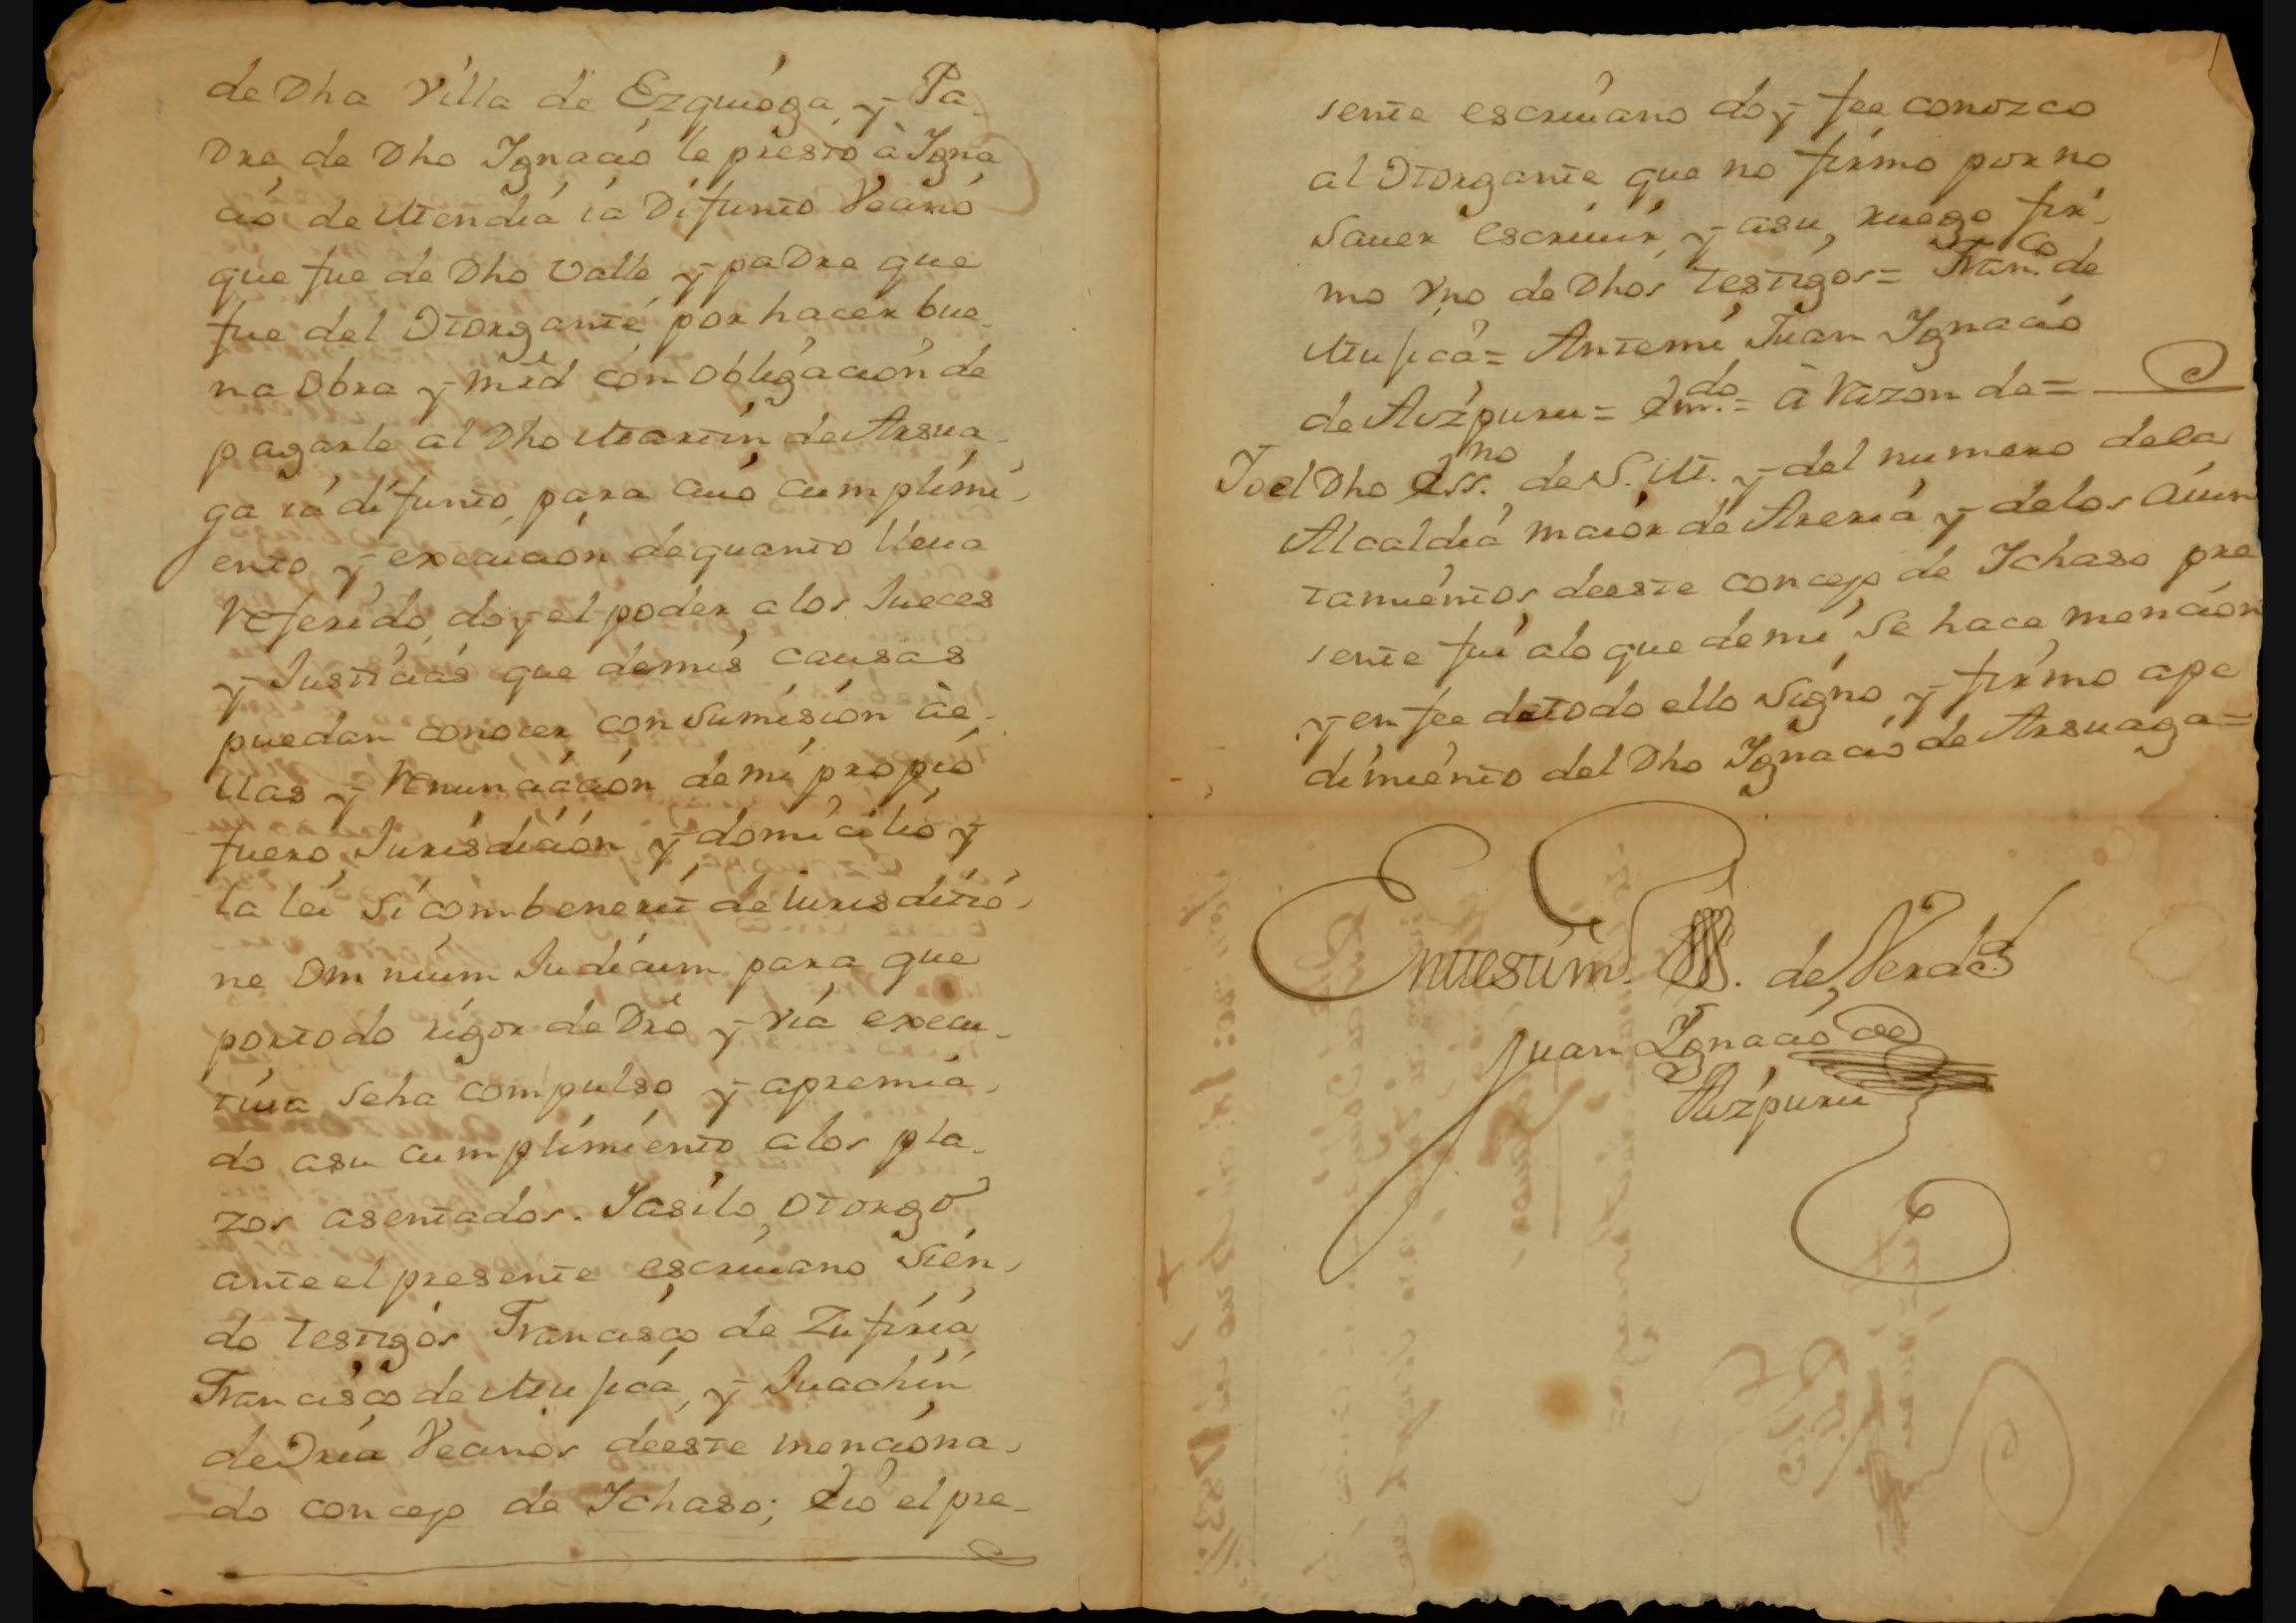 de Dha Villa de Ezquioga, y Pa-
Dre, de Dho Ignacio le presto à Igna
cio de Mendia ia Difunto Vecino
que fue de Dho Valle y paDre que
fue del Otorgante, por hacer bue-
na Obra y mrd con obligacion de
pagarle al Dho Martin de Arsua-
ga iá difunto, para cuio cumplimi-
ento y execucion de quanto lleua
Referido, doy el poder, a los Jueces
y Justicias que demis causas
puedan conocer con Sumision àe-
llas y Renunciacion de mi propio
fuero, Jurisdicion y domicilio y
la lei si combenerit de iurisditio-
ne Omnium Judicum para que
portodo rigor de Dro y via execu-
tiua seha compulso y apremia-
do asu cumplimiento alos pla-
zos asentados. Iasilo, Otorgo
anteel presente escriuano Sien-
do testigos Francisco de Zufiria
Francisco de Mujica, y Juachin
de Oria Vecinos deeste menciona-
do concejo de Ichaso; Eio el pre-
sente escriuano doy fee conozco
al Otorgante que no firmo por no
Sauer escriuir, y asu, ruego fir-
mo Vno de Dhos testigos= Fran.co de
Mujica= Antemi Juan Ignacio
de Aizpuru= Em.do= à Razon de=
Io el Dho Ess.no de S. M. y del numero dela
Alcaldia maior de Areria y delos Aiun
tamientos deeste concejo de Ichaso pre
sente fui alo que demi Se hace mencion
y en fee detodo ello Signo y firmo ape
dimiento del Dho Ignacio de Arsuaga=
Juan Ignacio de
Aizpuru